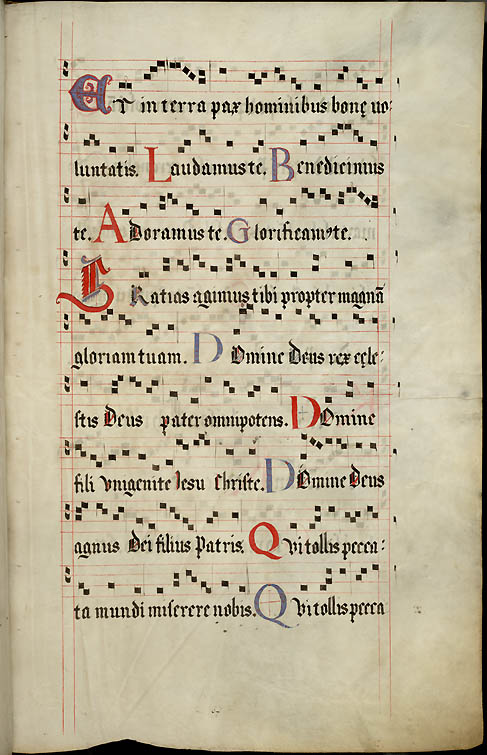 ET in terra pax hominibus bonę uo:
luntatis. Laudamus te. Benedicimus
te. ADoramus te. Glorificam᷒ te.
Gratias agimus tibi propter magnā
gloriam tuam. DOmine Deus rex cęle:
stis Deus pater omnipotens. DOmine
fili vnigenite Iesu Christe. DOmine Deus
agnus Dei filius Patris. Qvi tollis pecca:
ta mundi miserere nobis. Qvi tollis pecca